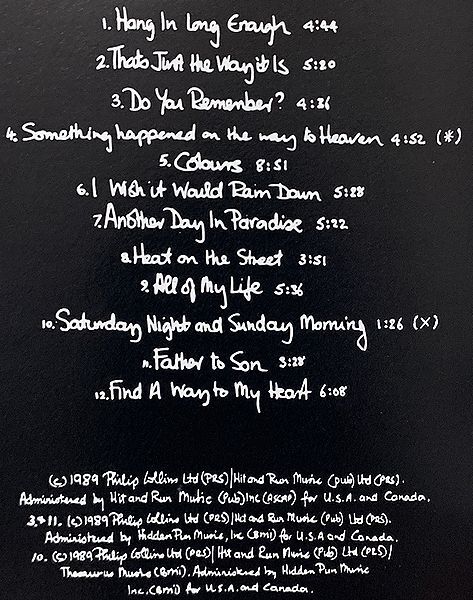 1. Hang In Long Enough 4:44
2. Thats Just the Way it Is 5:20
3. Do You Remember? 4:36
4. Something happened on the way to Heaven 4:52 (*)
5. Colours 8:51
6. I Wish it Would Rain Down 5:28
7. Another Day In Paradise 5:22
8. Heat on the Street 3:51
9. All of My Life 5:36
10. Saturday Night and Sunday Morning 1:26 (x)
11. Father to Son 3:28
12. Find A Way to My Heart 6:08
(c) 1989 Philip Collins Ltd (PRS)/Hit and Run Music (Pub) Ltd (PRS).
Administered by Hit and Run Music (Pub) Inc (ASCAP) for U.S.A. and Canada.
3+11. (c) 1989 Philip Collins Ltd (PRS)/Hit and Run Music (Pub) Ltd (PRS).
Administered by Hidden Pun Music, Inc (BMI) for U.S.A and Canada.
10. (c) 1989 Philip Collins Ltd (PRS)/ Hit and Run Music (Pub) Ltd (PRS)/
Thesaurus Music (BMI). Administered by Hidden Pun Music
Inc. (BMI) for U.S. and Canada.